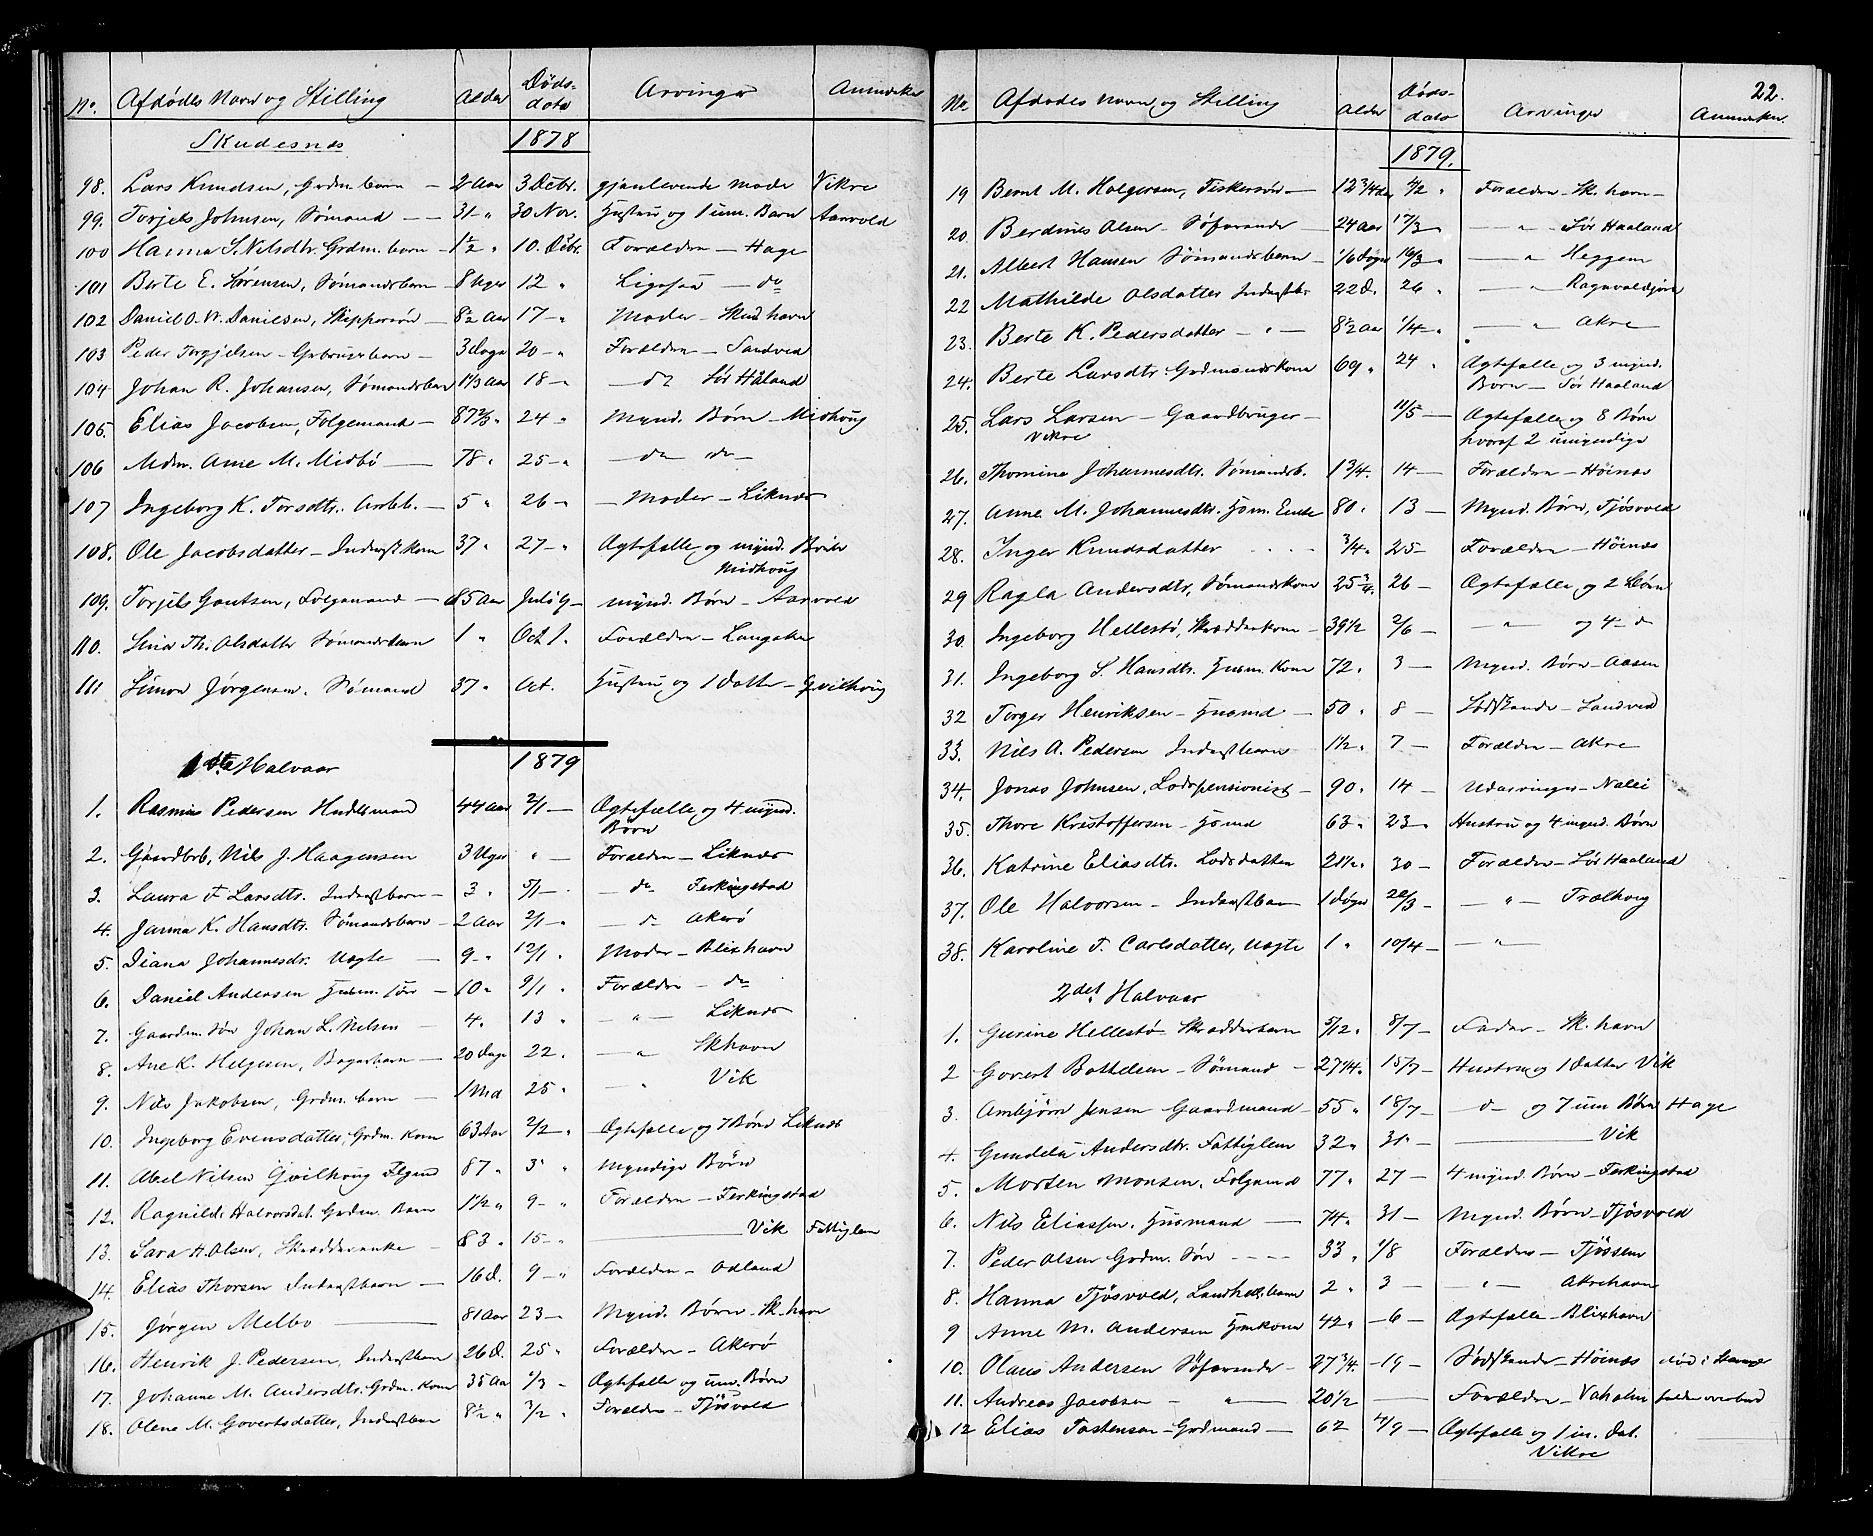 No. Afdødes Navn og Stilling Alder Døds-dato Arvinger Anmærkn.
Skudesnæs 1878
98. Lars Knudsen, Grdm. barn — 2 Aar 3 Decbr. gjenlevende Moder Vikre
99. Torjels Johnsen, Sømand — 31 " 30 Nov. Hustru og 1 um. Barn Aarvold
100 Hanna S. Nilsdtr. Grdm. barn — 1½ " 10. Decbr. Forældre — Hage
101 Berte E. Sørensen, Sømandsbarn — 8 Uger 12 " Ligesaa — do
102 Daniel O. W. Danielsen, Skippersøn — 8½ Aar 17 — " Moder — Skudhavn
103 Peder Torgjelsen — Grbrugerbarn — 3 Dage 20 — " Forældre — Sandved
104 Johan R. Johansen, Sømandsbarn 1⅓ Aar 18 — " — do Sør Håland
105. Elias Jacobsen, Folgemand — 87⅔ " 24 — " Mynd. Børn — Midhoug
106 Mdm. Ane M. Midbö — 78 " 25 — " — do do —
107 Ingeborg K. Torsdtr. Arbb. — 5 " 26 — " — Moder — Liknæs
108. Ole Jacobsdatter — Inderstkone 37 " 27 — " Ægtefælle og mynd. Børn
Midhoug
109. Torjels Gautsen, Folgemand — 85 Aar Juli 9 — mynd. Børn — Aarvold
110. Sina Th. Olsdatter Sømandsbarn 1 " Oct 1. Forældre — Langaker
111 Simon Jørgensen. Sømand 37 " Oct. Hustru og 1 Datter — Qvilhoug
1ste Halvaar 1879
1. Rasmus Pedersen Handelsmand 44 Aar 2/1 — Ægtefælle og 4 mynd.
Børn
2. Gaardbrb. Nils J. Haagensen 3 Uger " — Forældre — Liknæs
3. Laura F. Larsdtr. Inderstbarn — 3 " 5/1 — — do Ferkingstad
4. Janna K. Hansdtr. Sømandsbarn — 2 Aar 2/1 — " — d Akerø
5. Diana Johannesdr. Uægte — 9 — " 12/1 " Moder — Blixhavn
6. Daniel Andersen Husm. sør — 10 " 9/1 " Forældre — do
7. Gaardm. søn Johan L. Nilsen — 4. 13 " — " — Liknæs
8. Ane K. Helgesen, Bagerbarn — 20 Dage 22. — " Skhavn
9. Nils Jakobsen, Grdm. barn — 1 Md 25 " — " Vik
10. Ingeborg Evensdatter, Grdm. Kone 63 Aar 2/2 " Ægtefælle og 7 Børn Liknæs
11. Abel Nilsen Qvilhoug Flgmd 87 " 3 " Myndige Børn
12. Ragnilde Halvorsdat. Grdm. Barn 1½ " 9 — " Forældre — Ferkingstad
13. Sara H. Olsen, Skrædderenke — 83 " 15 — " — Vik Fattiglem
14. Elias Thorsen Inderstbarn — 16 D. 9 — " Forældre — Odland
15. Jørgen Melbo — 81 Aar 23 — Mynd. Børn — Sk. havn
16. Henrik J. Pedersen, Inderstbarn 26 D. 25 " Forældre — Akerø
17. Johanne M. Andersdtr. Grdm. Kone 35 Aar 1/3 — Ægtefælle og um. Børn
18. Olene M. Govertsdatter, Inderstbarn 8½ " 3/2 " Forældre — Tjøsvold
22.
No. Afdødes Navn og Stilling Alder Døds-dato Arvinger Anmærkn.
1879.
19 Bernt M. Holgersen, Fiskersøn — 12¾ Aar 4/2 " Forældre — Sk. havn —
20. Berdines Olsen — Søfarende — 24 Aar 17/3 — — " — Sør Haaland
21. Albert Hansen Sømandsbarn — 1/6 Døgn 16/3 " — " Heggem
22 Mathilde Olsdatter Inderstbr. 22 D. 26 " — " Ragnvaldsjøra
23. Berte K. Pedersdatter — " — 8½ Aar 1/4 — " — " Akre —
24. Berte Larsdtr Grdmandskone 69 " 24 " Ægtefælle og 3 mynd.
Børn — Sør Haaland
25. Lars Larsen — Gaardbruger — 11/5 — Ægtefælle og 8 Børn
Vikre hvoraf 2 umyndige
26. Thomine Johannesdtr. Sømandsb. 1 3/4. 14 — Forældre — Höinæs
27. Anne M. Johannesdtr. Hsm. Enke 80. 13 — Mynd. Børn, Tjösvold
28. Inger Knudsdatter . . . . ¾ " 25 — Forældre — Höinæs
29 Ragla Andersdtr, Sømandskone 25¾. 26 — Ægtefælle og 2 Børn
30. Ingeborg Hellestö, Skrædderkone — 39½ 2/6 — — " og 4 — d
31. Ingeborg S. Hansdtr. Husm. Kone 72. 3 — Mynd. Børn — Aasen
32 Torger Henriksen — Husmd — 50 " 8 — Södskende — Sandved
33. Nils A. Pedersen Inderstbarn 1½ " 7 — Forældre — Akre
34. Jonas Johnsen, Lodspensionist — 90. 14 — Udarvinger — Nalei
35. Thore Kristoffersen — Hsmd 63 " 23 " Hustru og 4 mynd. Børn
36. Katrine Eliasdtr. Lodsdatter 21½ " 30 — Forældre — Sör Haaland
37. Ole Halvorsen — Inderstbarn — 1 Døgn 20/3 — — " — Trælhoug
38. Karoline T. Carlsdatter, Uægte 1 " 10/4 — — " —
2det Halvaar
1. Gurine Hellestö Skrædderbarn 5/12 " 8/7 — Fader — Sk. havn
2 Govert Bottelsen — Sømand — 27¼. 15/7 — Hustru og 1 Datter Vik
3. Ambjørn Jensen Gaardmand — 55 " 18/7 — d — og 7 um Børn Hage
4. Gundela Andersdtr. Fattiglem 32 " 31 " — Vik
5. Morten Monsen. Folgmd 77. 27 — 4 mynd. Børn — Ferkingstad
6. Nils Eliassen. Husmand — 74. 31 — Mynd. Børn — Tjösvold
7. Peder Olsen Grdm. Søn - - - - 33 " 1/8 Forældre — Tjössem
8. Hanna Tjösvold, Landhdl. barn 2 " 3 — — " — Akrehavn
9 Anne M. Andersen Hmkone 42 " — 6 — Ægtefælle — Blixhavn
10. Olaus Andersen Søfarende — 27¾. — 19 — Södskende — Höinæs död i
11. Andreas Jacobsen — " — 20½ — Forældre — Vaholm falden overbord
12 Elias Tostensen — Grdmand — 62 4/9 — Ægtefælle og 1 m. Dat.
Vikre